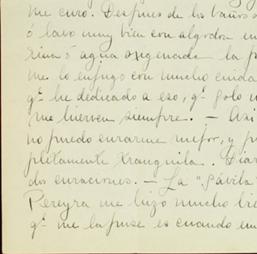 me curo. Despues de los baños
ó lavo muy bien con algodon en
ó agua oxigenada la
me lo enjugo con mucho cuida
qᵉ he dedicado a eso, qᵉ solo
me hierven siempre. — Asi
no puedo curarme mejor, y
pletamente tranquila. Diar
dos curaciones. — La "Gávita"
Pereyra me hizo mucho bie
qᵉ me la puse es cuando em